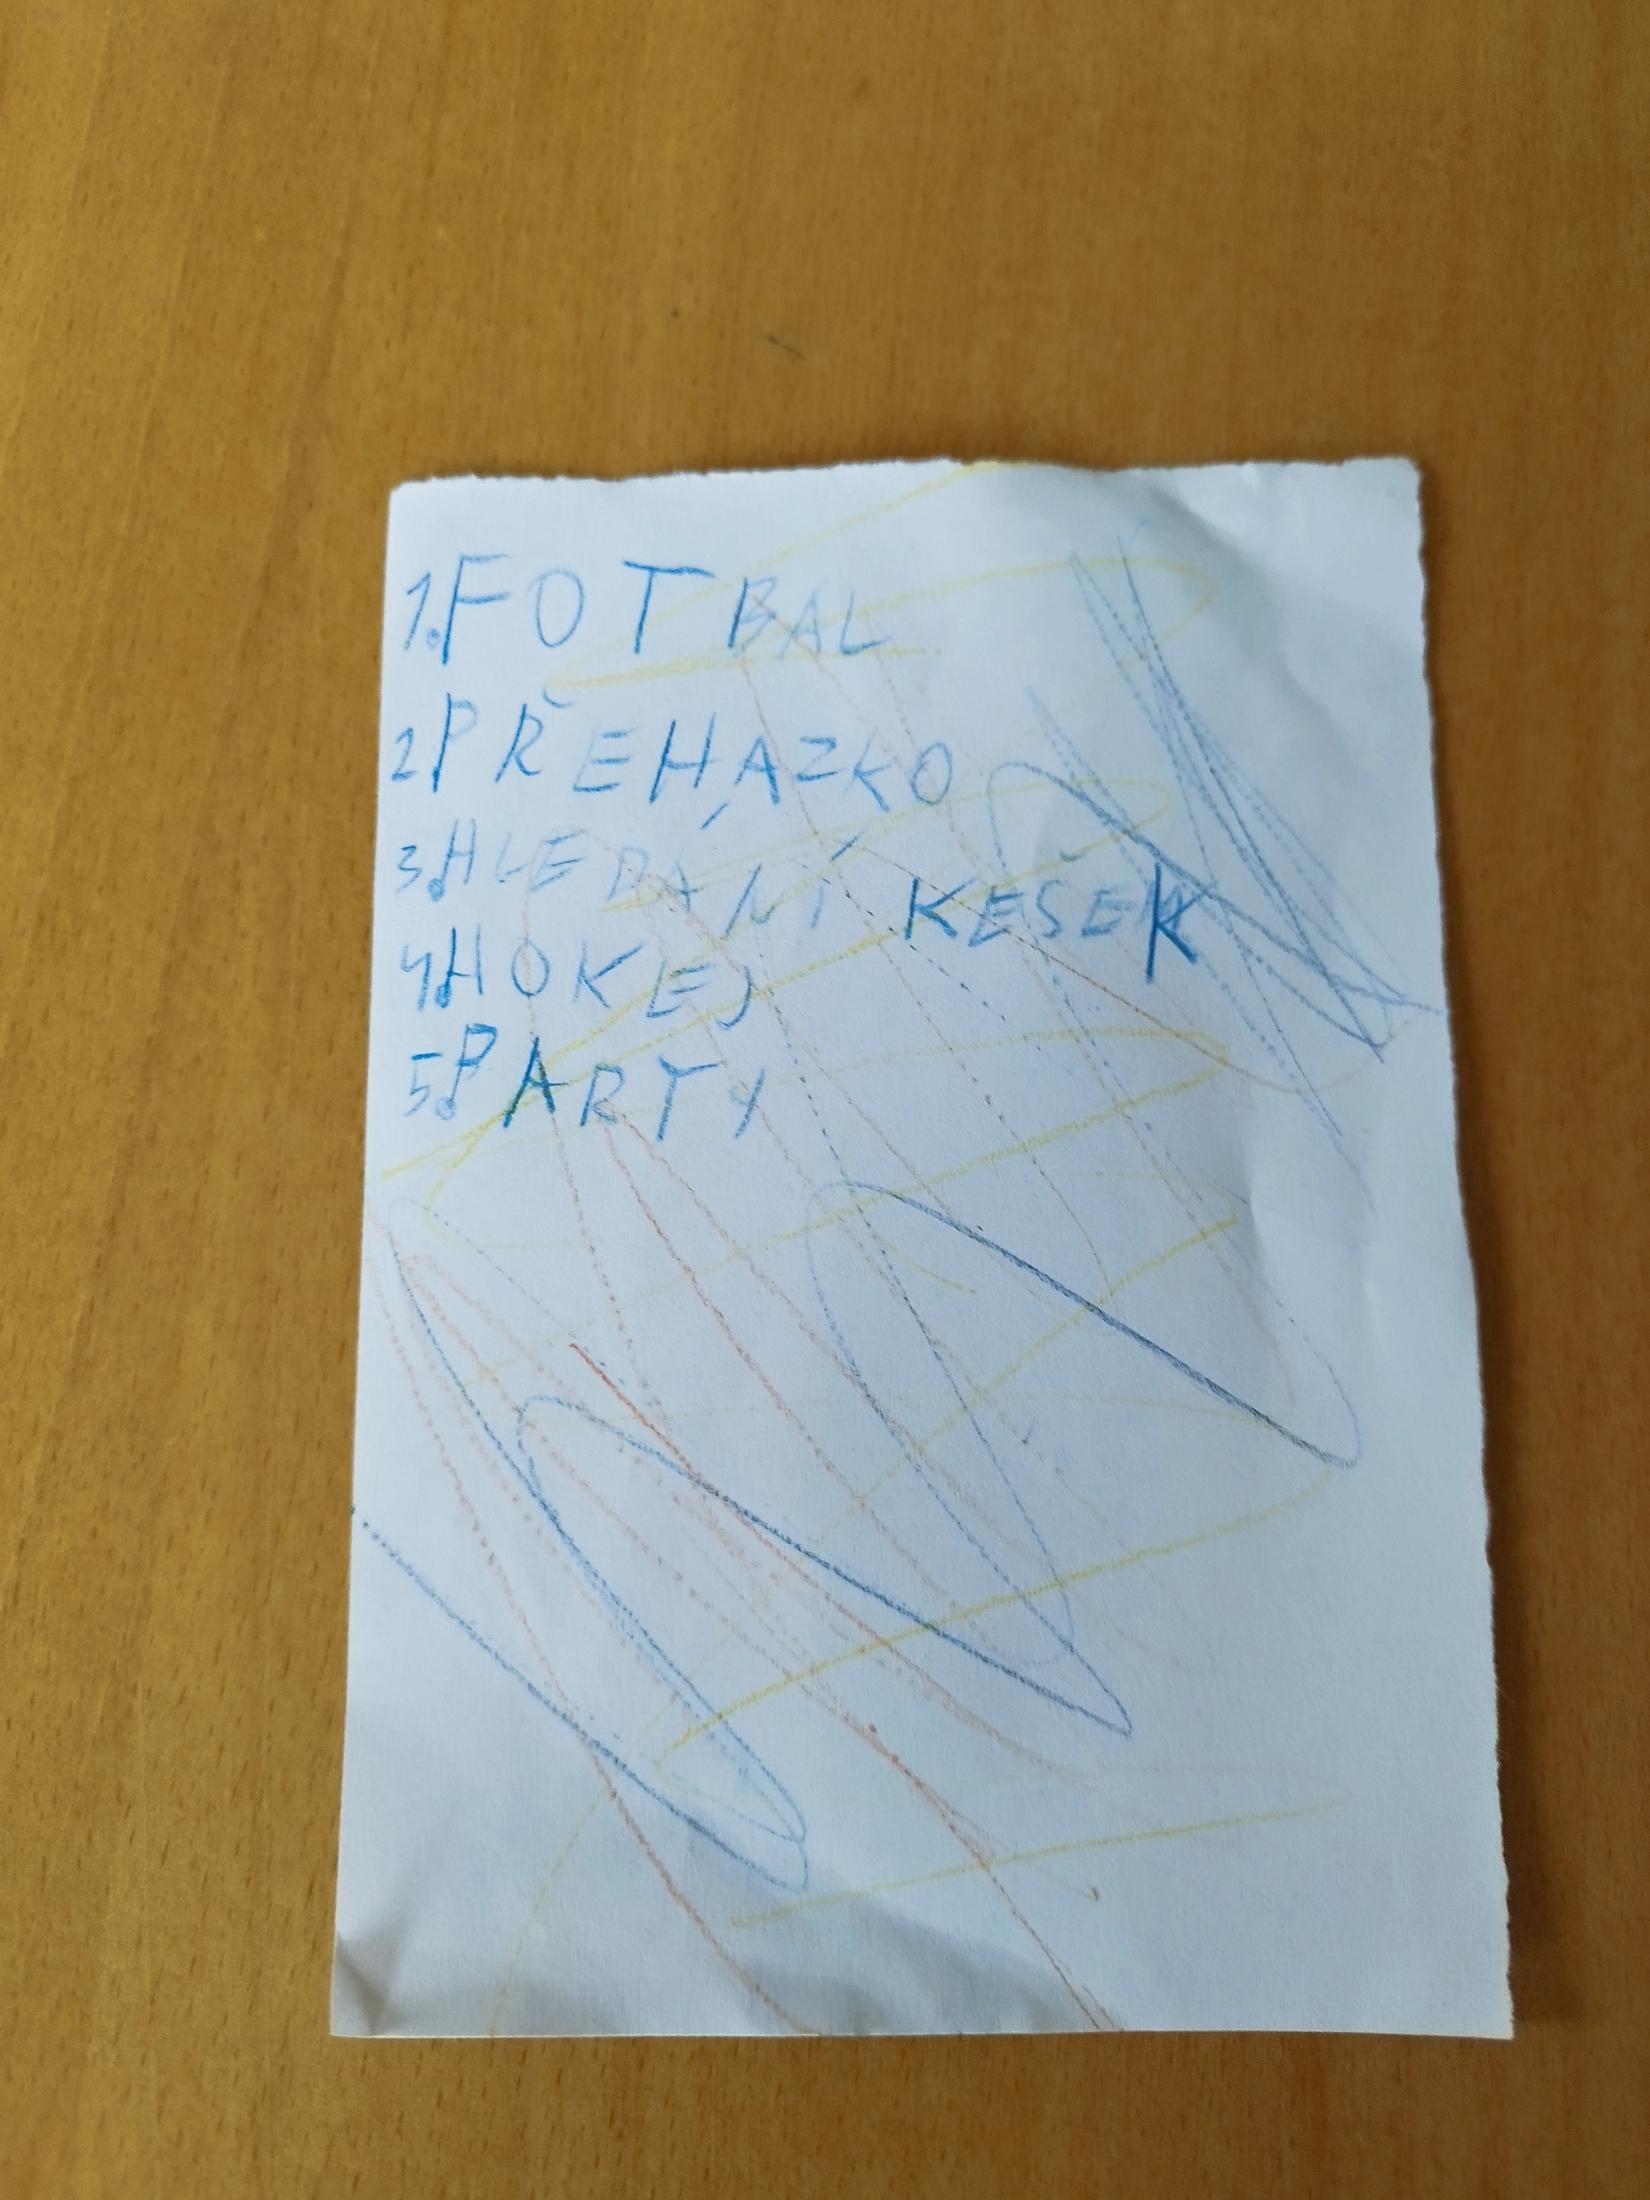 1. FOTBAL
2. PŘEHAZKO
3. HLEDÁNÍ KEŠEK
4. HOKEJ
5. PARTY